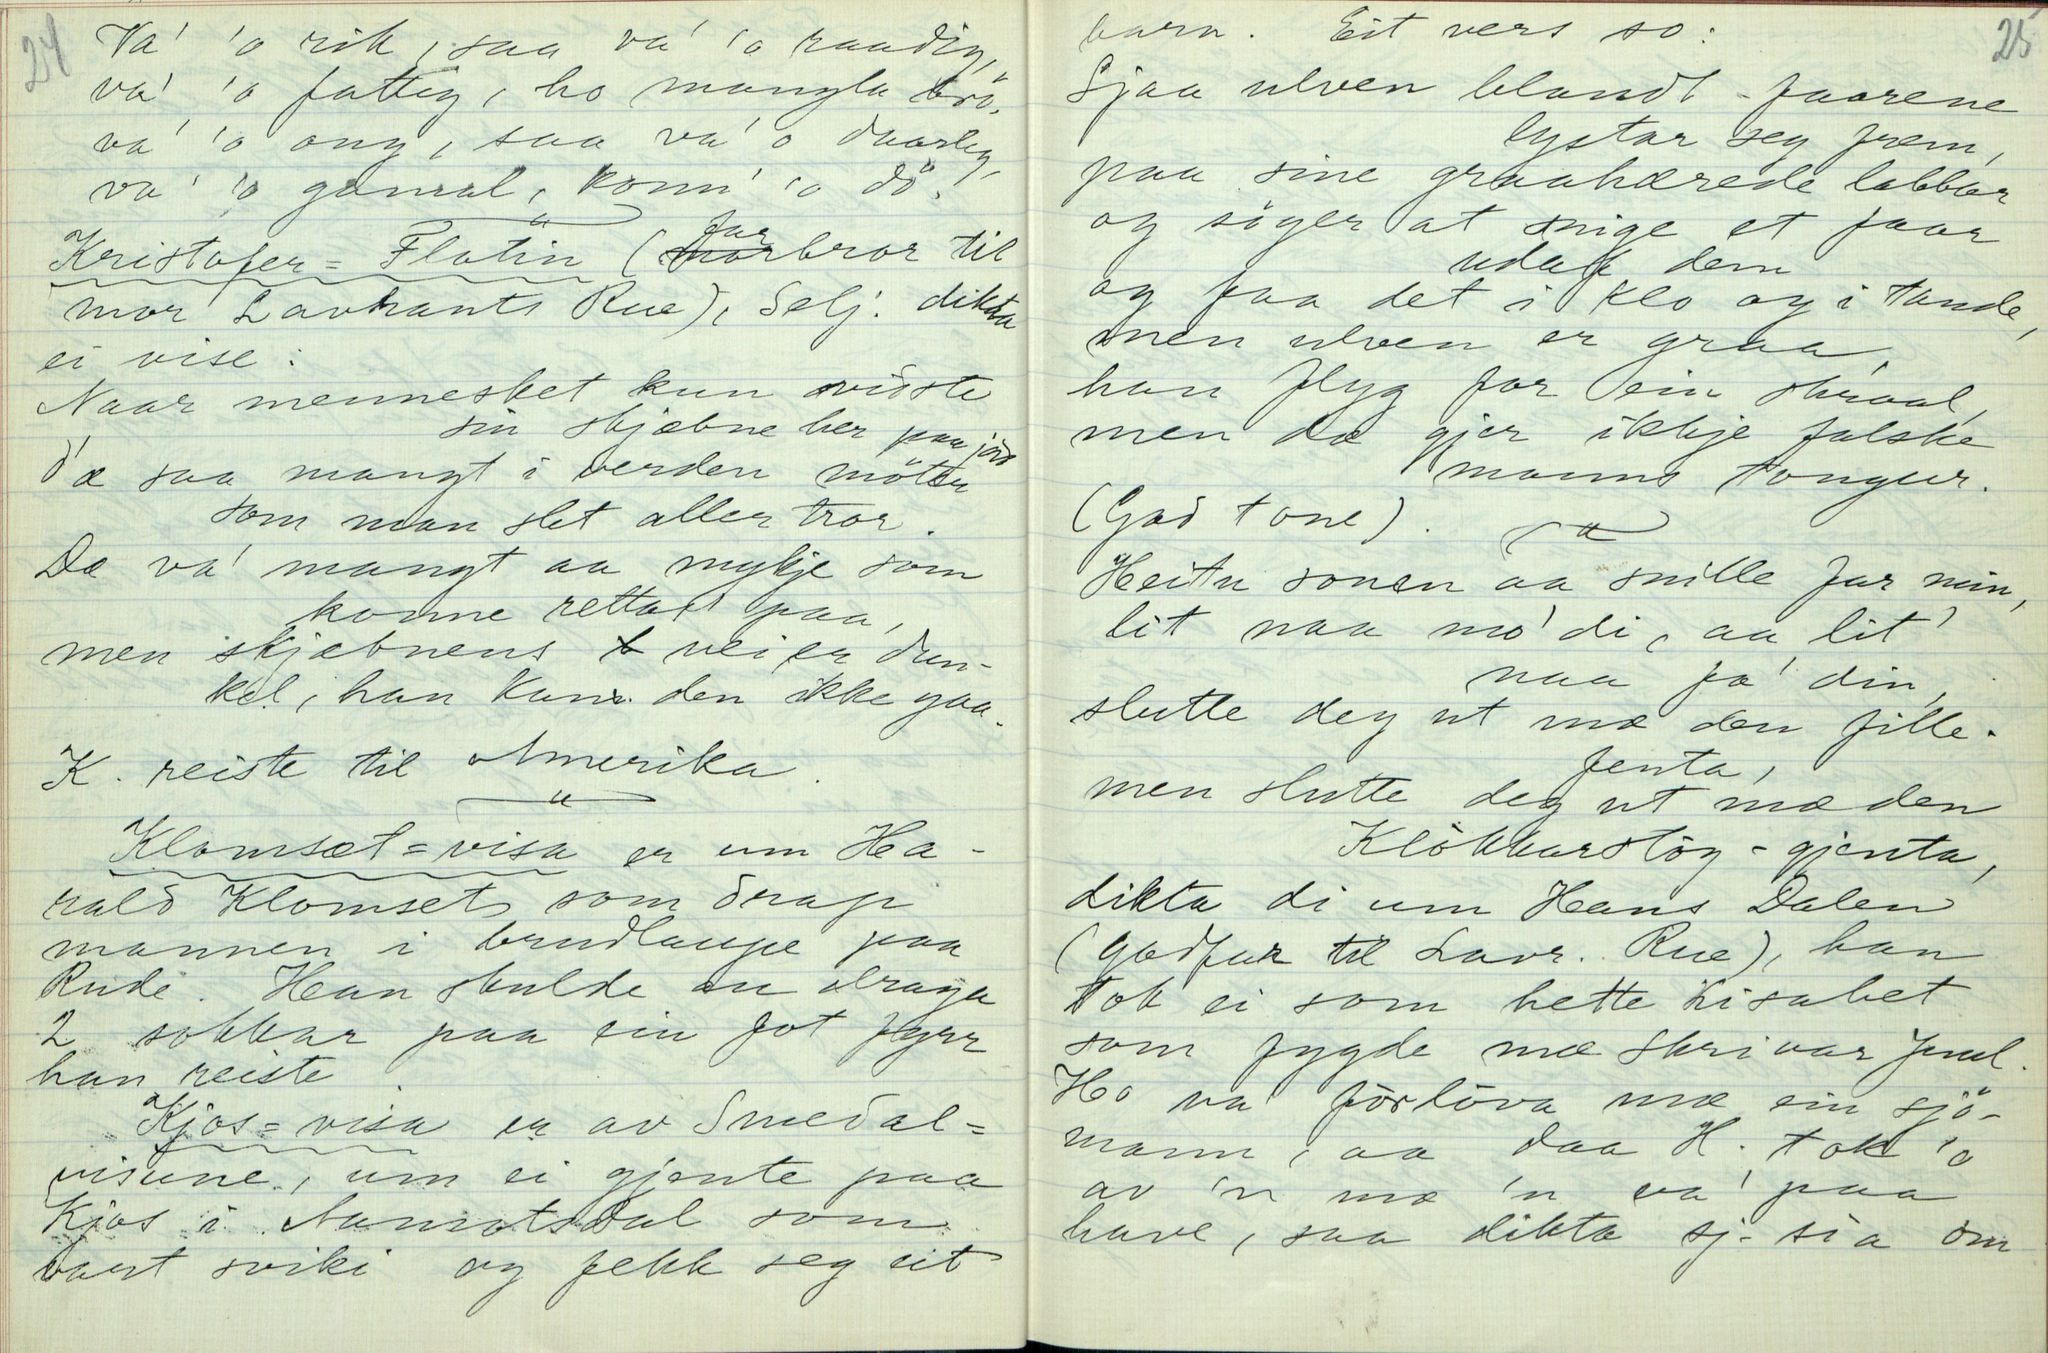 24
Va' 'o rik, saa va' 'o raadig,
va' 'o fattig, ho mangla brö,
va' 'o ong, saa va' 'o daarleg,
va' 'o gamal, konn' 'o dö.
Kristofer = Flatin (farbror til
mor Lavrants Rue), Selj. dikta
ei vise:
Naar mennesket kun vidste
sin skjæbne her paa jord
d'æ saa mangt i verden möter
som man slet aller tror.
Dæ va' mangt aa mykje som
konne retta paa,
men skjæbnens vei er dun-
kel, han kan den ikke gaa.
K. reiste til Amerika.
Klomset = visa er um Ha-
rald Klomset som drap
mannen i brudlaupe paa
Rudi. Han skulde au draga
2 sokkar paa ein fot fyrr
han reiste.
Kjos = visa er av Smedal =
visune, um ei gjente paa
Kjos i Aamotsdal som
vart sviki og fekk seg eit
25
barn. Eit vers so:
Sjaa ulven blandt faarene
lystar seg frem,
paa sine graahærede labbar
og söger at snige et faar
udaf dem
og faa det i klo og i tande,
men ulven er graa,
han flyg for ein skraal,
men dæ gjer ikkje falske
manns tongur.
(God tone).
Heitu sonen aa snille far min,
lit naa mo' di, aa lit'
naa fa' din,
slutte deg ut mæ den fille-
jenta,
men slutte deg ut mæ den
Klökkarstög - gjenta,
dikta di um Hans Dalen
(godfar til Lavr. Rue), han
tok ei som hette Lisabet
som fygde mæ skrivar Juul.
Ho va' förlöva mæ ein sjö-
mann, aa daa H. tok 'o
av 'n mæ 'n va' paa
have, saa dikta sj. sia om